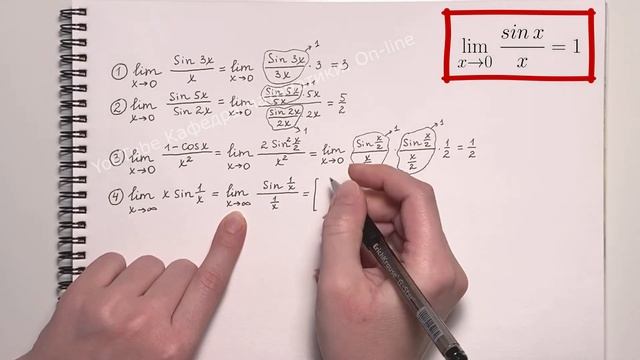 lim x→0 sin x / x = 1
① lim x→0 Sin 3x / x = lim x→0 Sin 3x / 3x →1 · 3 = 3
② lim x→0 Sin 5x / Sin 2x = lim x→0 (Sin 5x / 5x →1 · 5x) / (Sin 2x / 2x →1 · 2x) = 5/2
③ lim x→0 1-cos x / x² = lim x→0 2 Sin² x/2 / x² = lim x→0 Sin x/2 / x →1 · Sin x/2 / x/2 →1 · 1/2 = 1/2
④ lim x→∞ x Sin 1/x = lim x→∞ Sin 1/x / 1/x = [
Youtube Кафедра On-line
ErichKrause